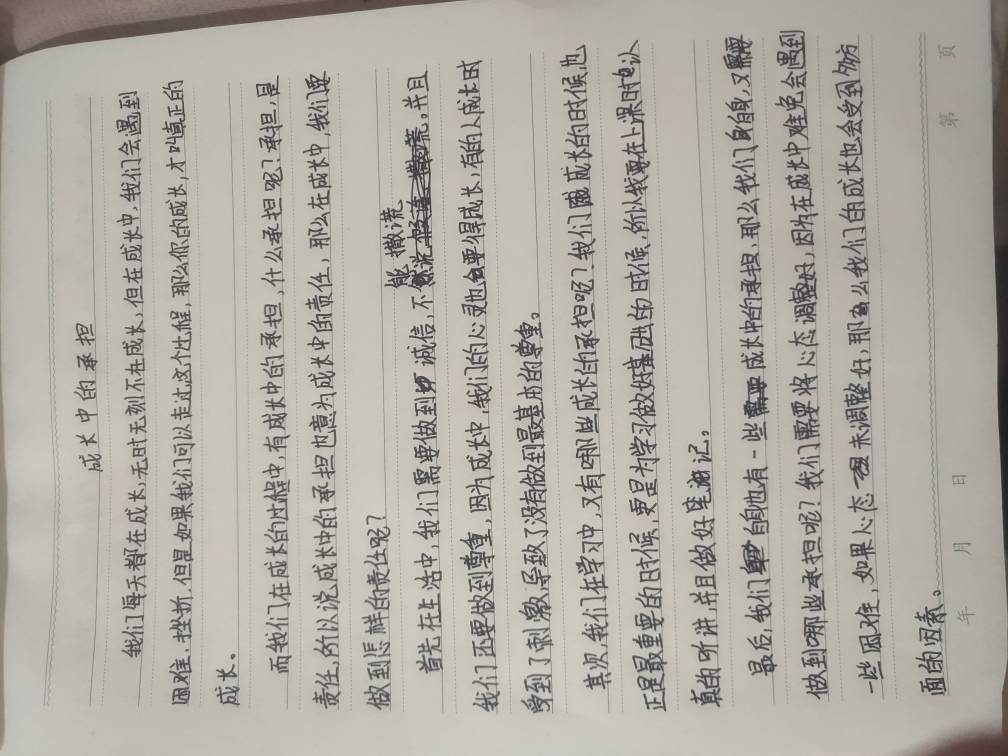 成长中的承担
我们每天都在成长,无时无刻不在成长,但在成长中,我们会遇到
困难,挫折,但是如果我们可以走过这个过程,那么你的成长,才叫真正的
成长。
而我们在成长的过程中,有成长中的承担,什么承担呢?承担,是
责任,所以说成长中的承担也意为成长中的责任,那么在成长中,我们要
做到怎样的责任呢?
能撒谎
首先在生活中,我们需要做到诚信,不。并且
我们还要做到尊重,因为成长中,我们的心灵也会要得成长,有的人成长时
受到了刺激,导致了没有做到最基本的尊重。
其次,我们在学习中,又有哪些成长的承担呢?我们成长的时候,也
正是最重要的时候,更是为学习做好基础的时候,所以我要在上课时认
真的听讲,并且做好笔记。
最后,我们自身也有一些成长中的承担,那么我们身自身,又需要
做到哪些承担呢?我们需要将心态调整好,因为在成长中难免会遇到
一些困难,如果心态未调整好,那么我们的成长也会受到多方
面的因素。
年 月 日 第 页